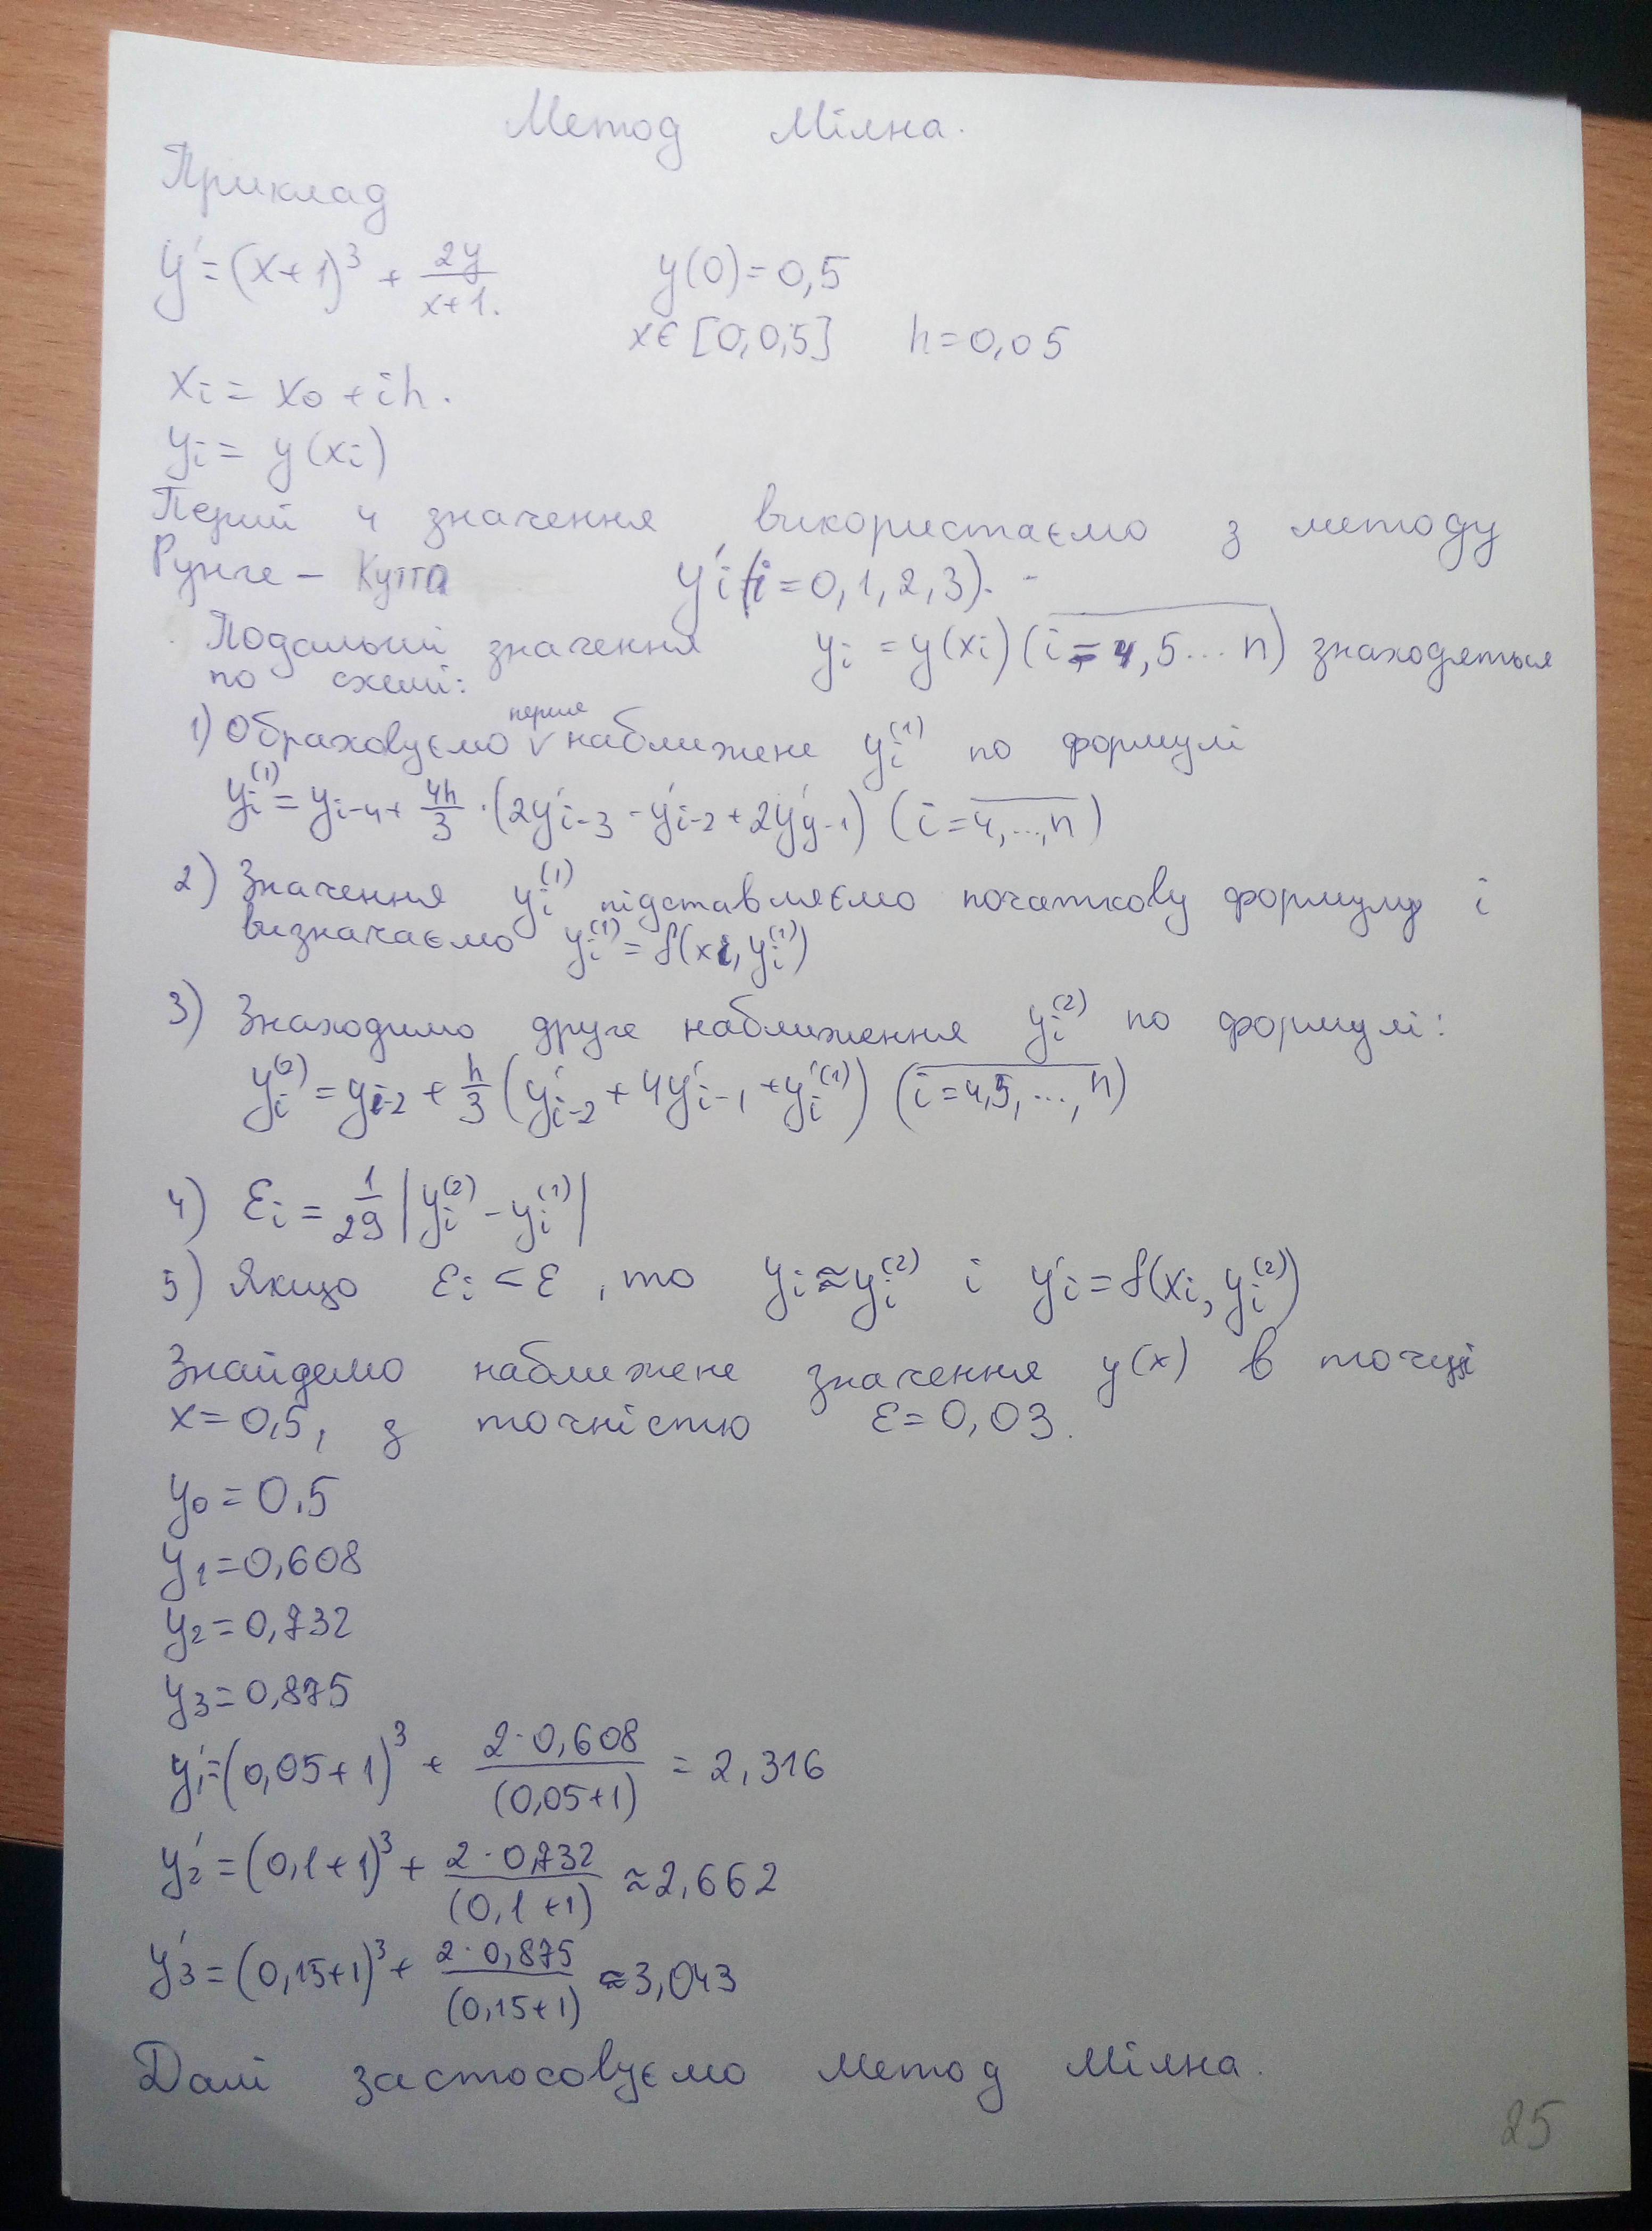 Метод Мілна.
Приклад
y' = (x+1)³ + 2y/(x+1). y(0)=0,5
x∈[0,0,5] h=0,05
xi = x0 + ih.
yi = y(xi)
Перші 4 значення використаємо з методу
Рунге – Кутта y'i (i=0,1,2,3).
Подальші значення yi = y(xi) (i=4,5...n) знаходяться
по схемі:
1) Обраховуємо перше наближене yi⁽¹⁾ по формулі
yi⁽¹⁾ = yi-4 + 4h/3 · (2y'i-3 - y'i-2 + 2y'y-1) (i=4,...,n)
2) Значення yi⁽¹⁾ підставляємо початкову формулу і
визначаємо yi⁽¹⁾ = f(xi, yi⁽¹⁾)
3) Знаходимо друге наближення yi⁽²⁾ по формулі:
yi⁽²⁾ = yi-2 + h/3 (y'i-2 + 4y'i-1 + y'i⁽¹⁾) (i=4,5,...,n)
4) εi = 1/29 |yi⁽²⁾ - yi⁽¹⁾|
5) Якщо εi < ε, то yi ≈ yi⁽²⁾ і y'i = f(xi, yi⁽²⁾)
Знайдемо наближене значення y(x) в точці
x=0,5, з точністю ε=0,03.
y0 = 0.5
y1 = 0,608
y2 = 0,732
y3 = 0,875
y'1 = (0,05+1)³ + 2·0,608/(0,05+1) = 2,316
y'2 = (0,1+1)³ + 2·0,732/(0,1+1) ≈ 2,662
y'3 = (0,15+1)³ + 2·0,875/(0,15+1) ≈ 3,043
Далі застосовуємо метод Мілна.
25